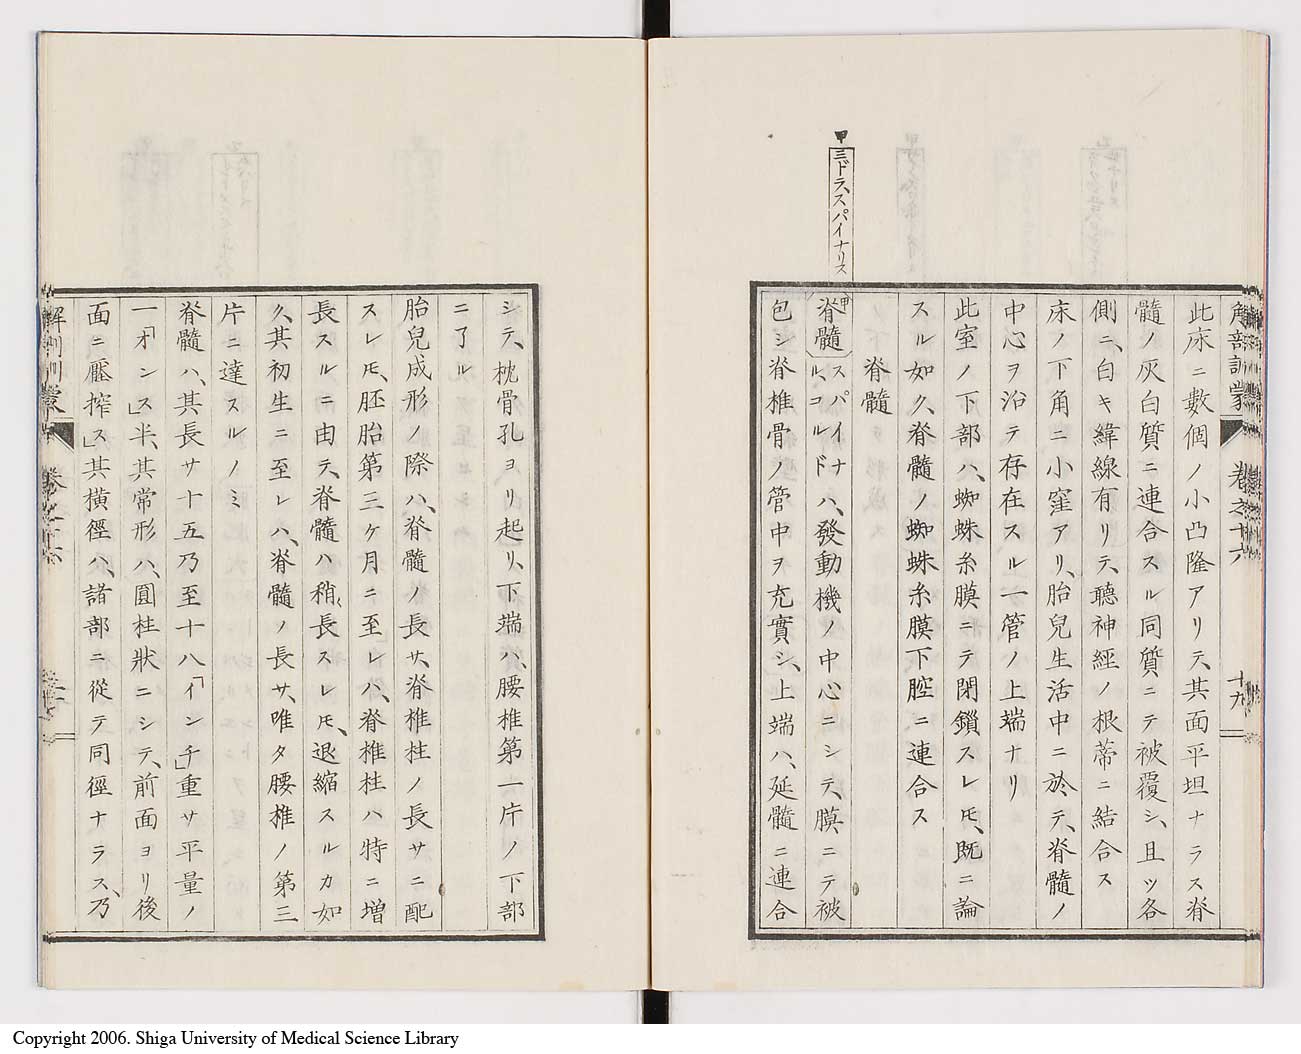 解剖訓蒙 卷之十六 十九
此床ニ數個ノ小凸隆アリテ、其面平坦ナラス脊
髓ノ灰白質ニ連合スル同質ニテ被覆シ、且ツ各
側ニ、白キ緯線有リテ、聽神經ノ根蒂ニ結合ス
床ノ下角ニ小窪アリ、胎兒生活中ニ於テ、脊髓ノ
中心ヲ沿テ存在スル一管ノ上端ナリ
此室ノ下部ハ、蜘蛛糸膜ニテ閉鎖スレ𪜈、既ニ論
スル如ク、脊髓ノ蜘蛛糸膜下腔ニ連合ス
脊髓
甲 三ドラ、スパイナリス
甲脊髓〔スパイナル、コルド〕ハ、發動機ノ中心ニシテ、膜ニテ被
包シ脊椎骨ノ管中ヲ充實シ、上端ハ、延髓ニ連合
シテ、枕骨孔ヨリ起リ、下端ハ、腰椎第一片ノ下部
ニ了ル
胎兒成形ノ際ハ、脊髓ノ長サ、脊椎柱ノ長サニ配
スレ𪜈、胚胎第三ケ月ニ至レハ、脊椎柱ハ特ニ増
長スルニ由テ、脊髓ハ稍〻長スレ𪜈、退縮スルカ如
ク、其初生ニ至レハ、脊髓ノ長サ、唯タ腰椎ノ第三
片ニ達スルノミ
脊髓ハ、其長サ十五乃至十八「インチ」重サ平量ノ
一「オンス」半、其常形ハ、圓柱狀ニシテ、前面ヨリ後
面ニ壓搾ス」其橫徑ハ、諸部ニ從テ同徑ナラス、乃
解剖訓蒙 卷之十六